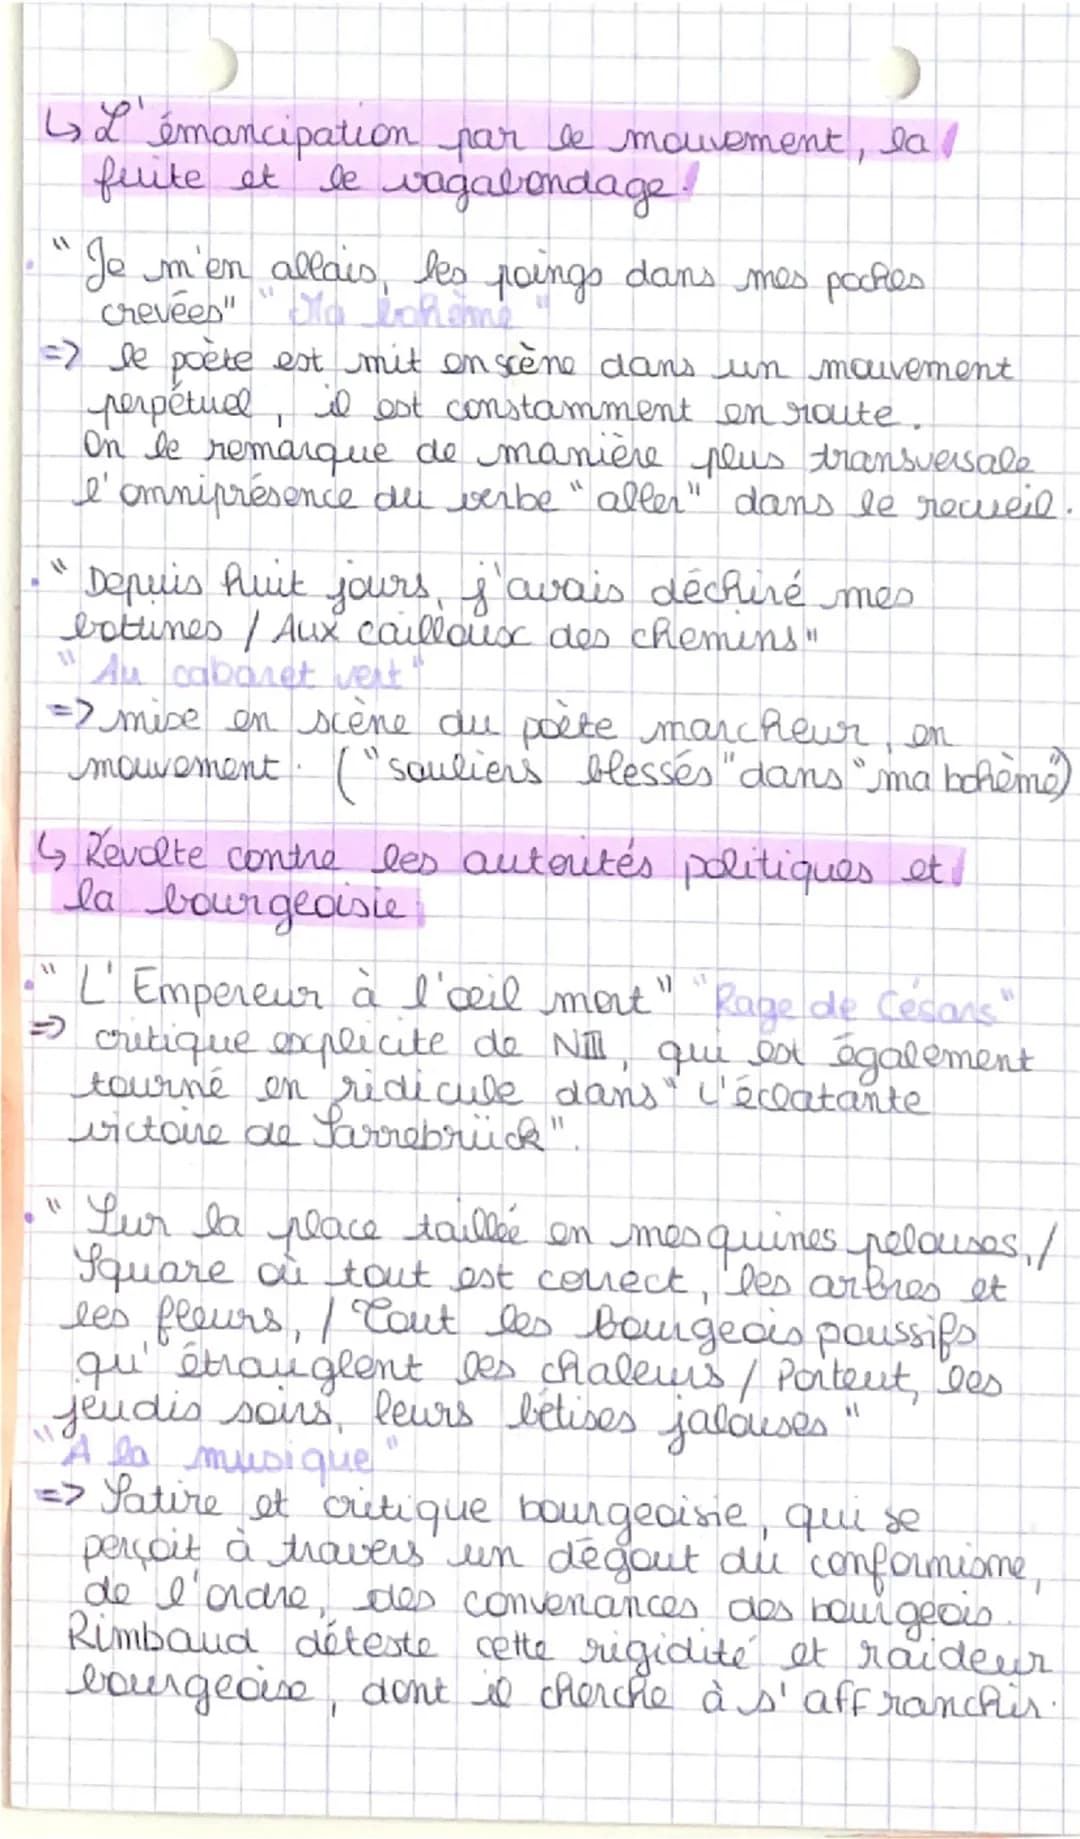 ↳ L'émancipation par le mouvement, la
fuite et le vagabondage.
• " Je m'en allais, les poings dans mes poches
crevées" "Ma bohème"
=> le poète est mit en scène dans un mouvement
perpétuel, il est constamment en route.
On le remarque de manière plus transversale
l'omniprésence du verbe "aller" dans le recueil.
• " Depuis huit jours, j'avais déchiré mes
bottines / Aux cailloux des chemins"
" Au cabaret vert"
=> mise en scène du poète marcheur, en
mouvement. ("souliers blessés" dans "ma bohème")
↳ Révolte contre les autorités politiques et
la bourgeoisie
• " L'Empereur à l'œil mort" "Rage de Césars"
=> critique explicite de NIII, qui est également
tourné en ridicule dans "L'éclatante
victoire de Sarrebrück".
• " Sur la place taillée en mesquines pelouses, /
Square où tout est correct, les arbres et
les fleurs, / Tout les bourgeois poussifs
qu'étrauglent les chaleurs / Portent, les
jeudis soirs, leurs bêtises jalouses"
"A la musique"
=> Satire et critique bourgeoisie, qui se
perçoit à travers un dégout du conformisme,
de l'ordre, des convenances des bourgeois.
Rimbaud déteste cette rigidité et raideur
bourgeoise, dont il cherche à s'affranchir.